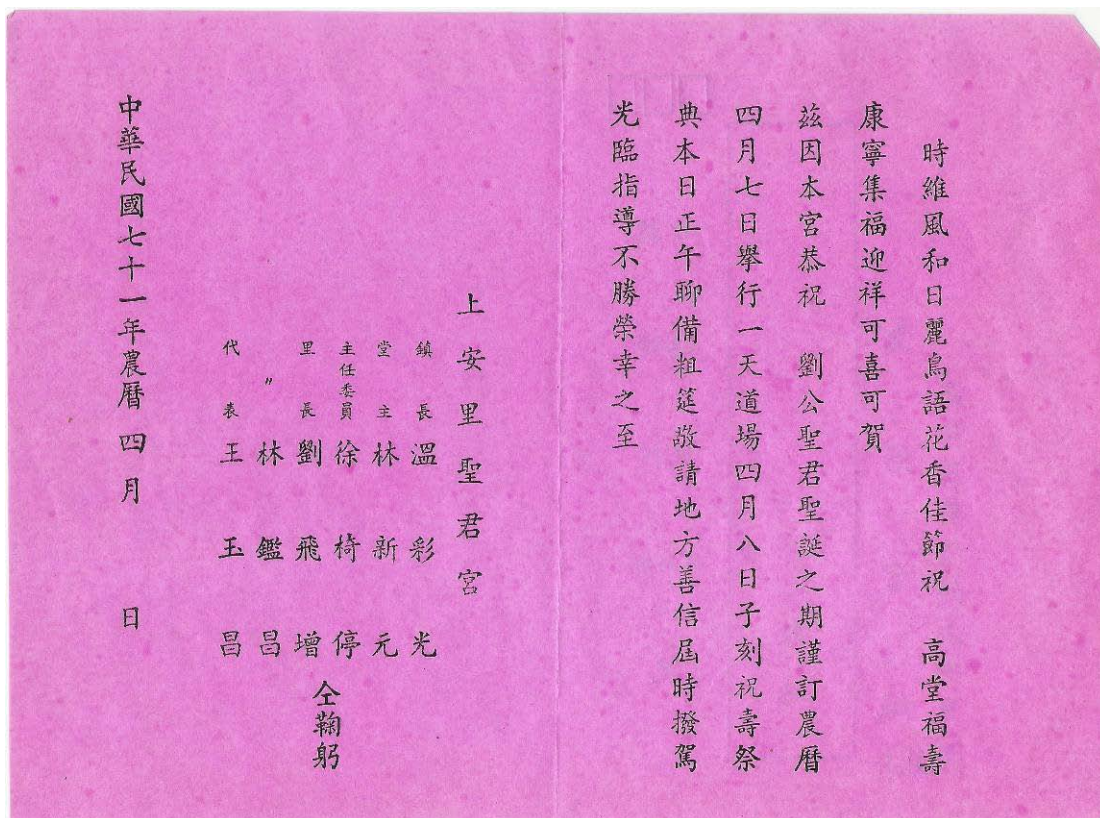 時維風和日麗鳥語花香佳節祝　高堂福壽
康寧集福迎祥可喜可賀
茲因本宮恭祝　劉公聖君聖誕之期謹訂農曆
四月七日舉行一天道場四月八日子刻祝壽祭
典本日正午聊備粗筵敬請地方善信屆時撥駕
光臨指導不勝榮幸之至
上安里聖君宮
鎮長　溫彩光
堂主　林新元
主任委員　徐椅停
里長　劉飛增
〃　林鑑昌
代表　王玉昌
仝鞠躬
中華民國七十一年農曆四月　日